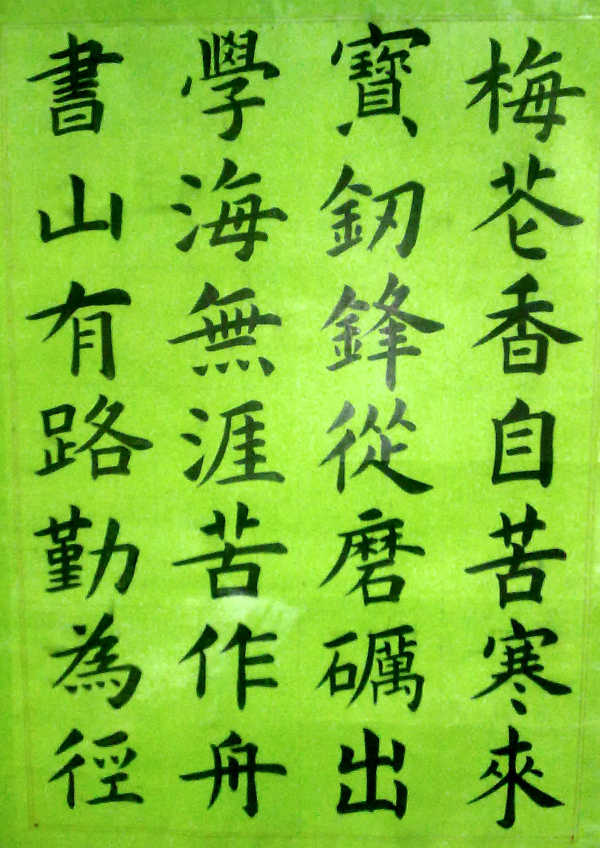 梅花香自苦寒來
寶釼鋒從磨礪出
學海無涯苦作舟
書山有路勤為徑